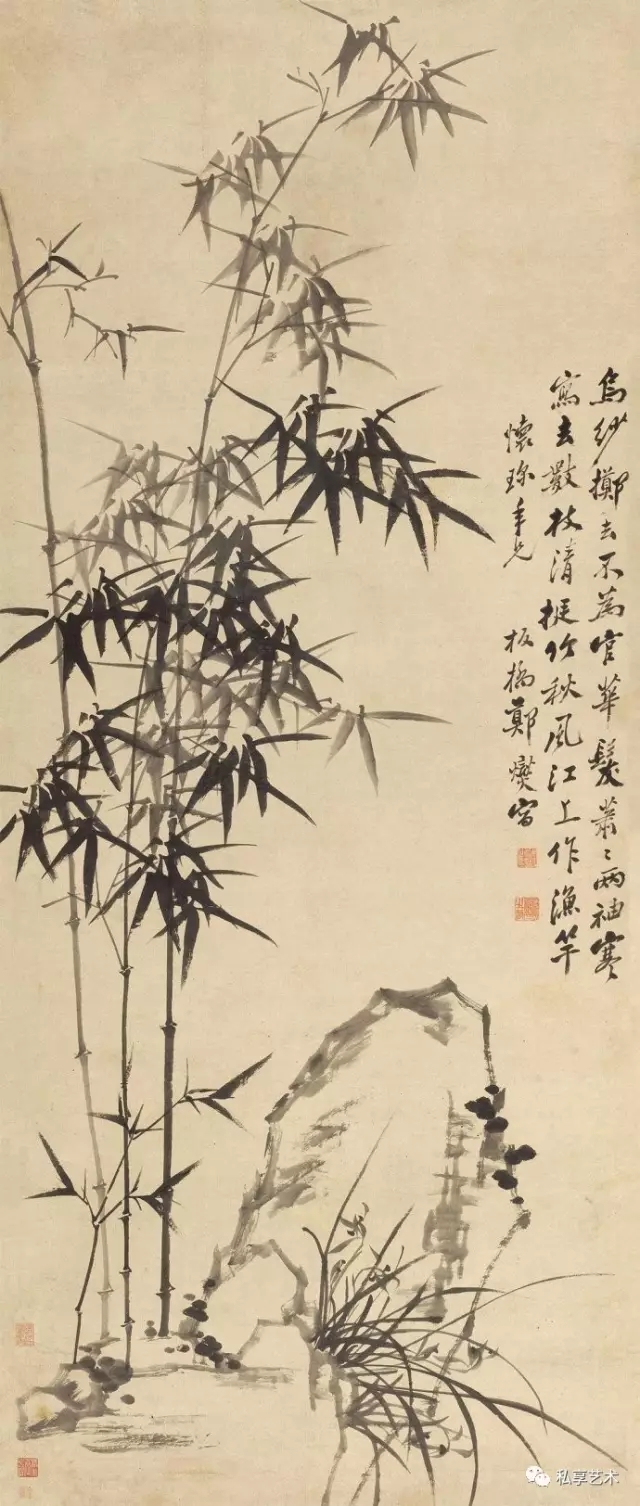 烏紗擲去不為官華髮蕭〻兩袖寒
寫去數枝清挺竹秋風江上作漁竿
懷珎年兄 板橋鄭燮寫
私享艺术